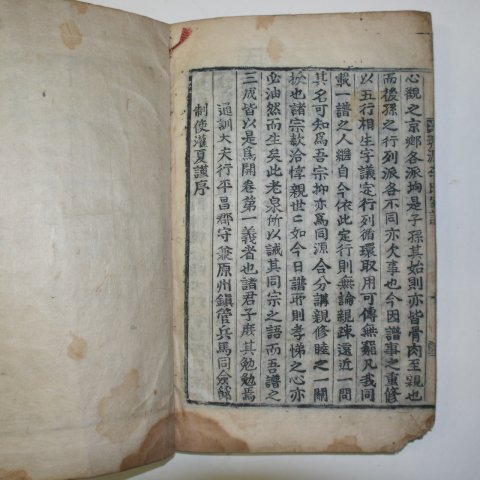 心觀之京鄕各派均是子孫其始則亦皆骨肉至親也
而後孫之行列派各不同亦欠事也今因譜事之重修
以五行相生字議定行列循環取用可傳無窮凡我同
載一譜之人繼自今依此定行則無論親疎遠近一問
其名可知爲吾宗抑亦爲同源合分講親修睦之一關
捩也諸宗欵洽惇親世二如今日譜所則孝悌之心亦
必油然而生矣此老泉所以誡其同宗之語而吾譜之
三成皆以是爲開卷第一義者也諸君子庶其勉勉焉
通訓大夫行平昌郡守兼原州鎭管兵馬同僉節
制使灌夏謹序